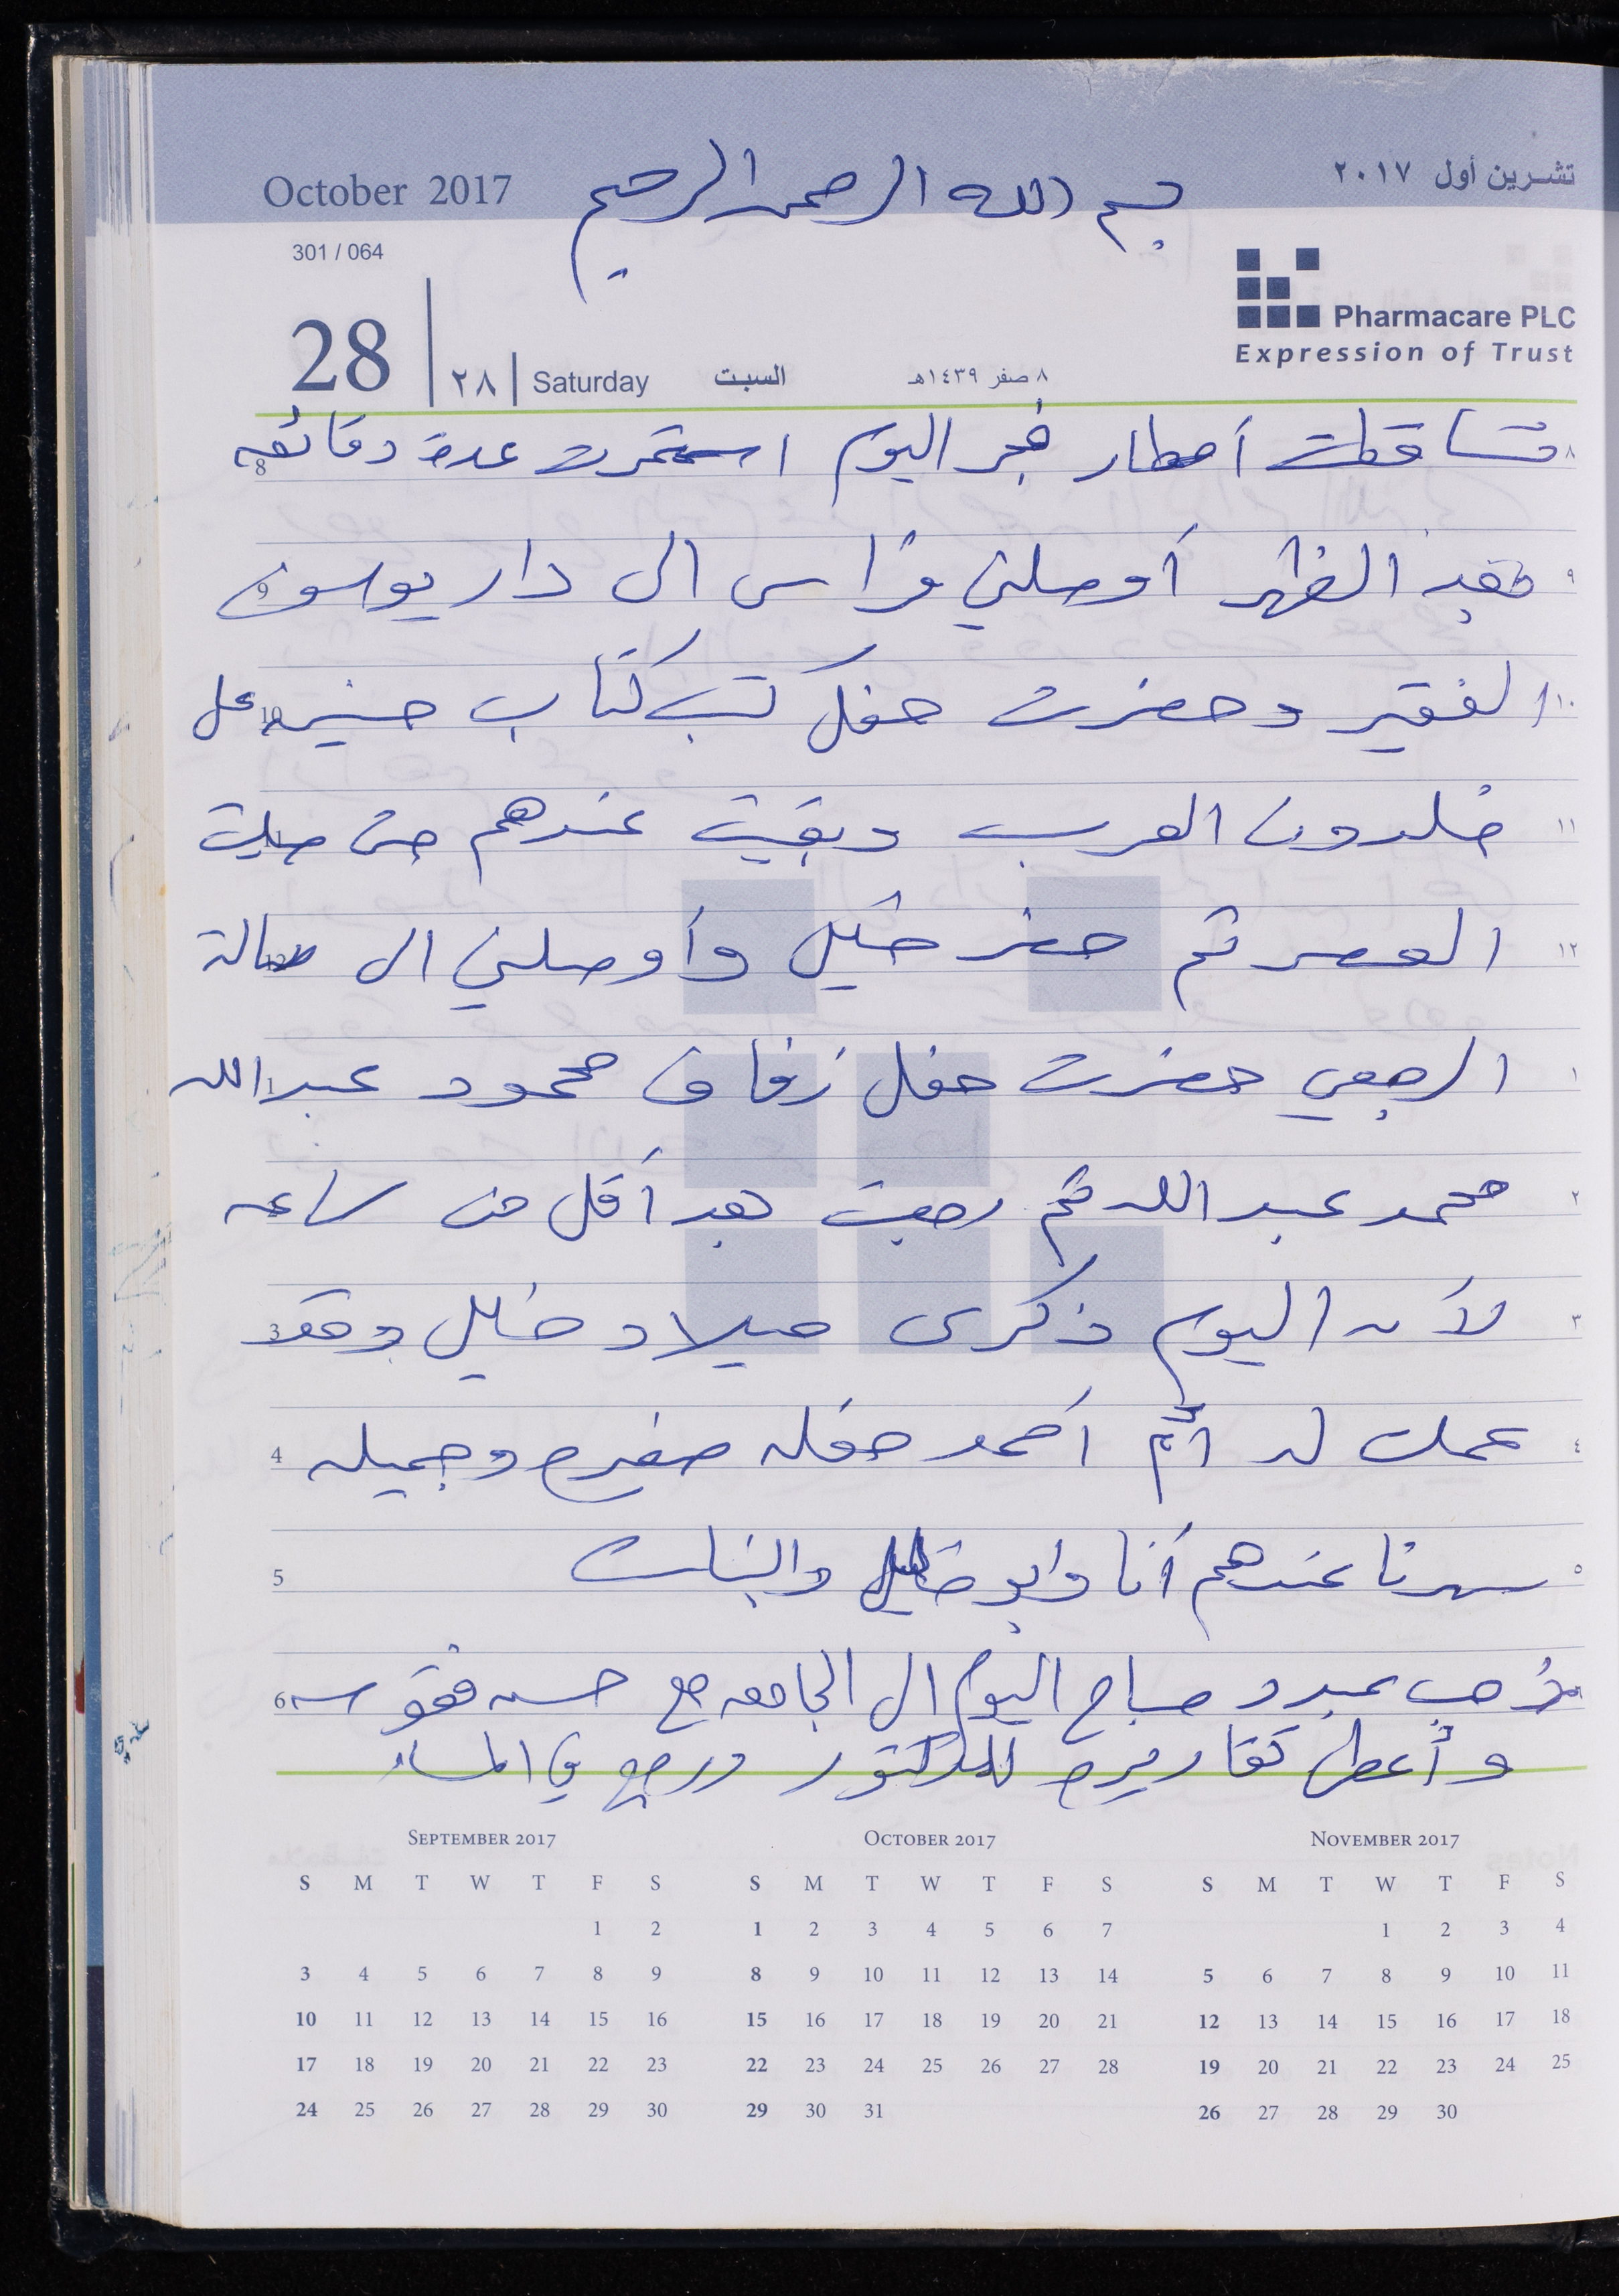 October 2017
بسم الله الرحمن الرحيم
تشرين أول ٢٠١٧
301 / 064
Pharmacare PLC
Expression of Trust
28 ٢٨ Saturday السبت ٨ صفر ١٤٣٩هـ
٨ تساقطت أمطار فجر اليوم استمرت عدة دقائق 8
٩ بعد الظهر أوصلني فراس الى دار يوسف 9
١٠ الفقير وحضرت حفل كتب كتاب على 10
١١ خلدون العرب وبقيت عندهم حتى صليت 11
١٢ العصر ثم حضر خليل وأوصلني الى صالة 12
١ الرجبي حضرت حفل زفاف محمود عبد الله 1
٢ محمد عبد الله ثم رجعت بعد أقل من ساعه 2
٣ لأن اليوم ذكرى ميلاد خليل وقد 3
٤ عملت له أم أحمد حفله صغيره وجميله 4
٥ سهرنا عندهم أنا وأبو خليل والبنات 5
ذهب صباح اليوم الى الجامعه مع حسن فقوسه 6
وأعطى تقاريره للدكتور ورجع في المساء
September 2017
S M T W T F S
1 2
3 4 5 6 7 8 9
10 11 12 13 14 15 16
17 18 19 20 21 22 23
24 25 26 27 28 29 30
October 2017
S M T W T F S
1 2 3 4 5 6 7
8 9 10 11 12 13 14
15 16 17 18 19 20 21
22 23 24 25 26 27 28
29 30 31
November 2017
S M T W T F S
1 2 3 4
5 6 7 8 9 10 11
12 13 14 15 16 17 18
19 20 21 22 23 24 25
26 27 28 29 30